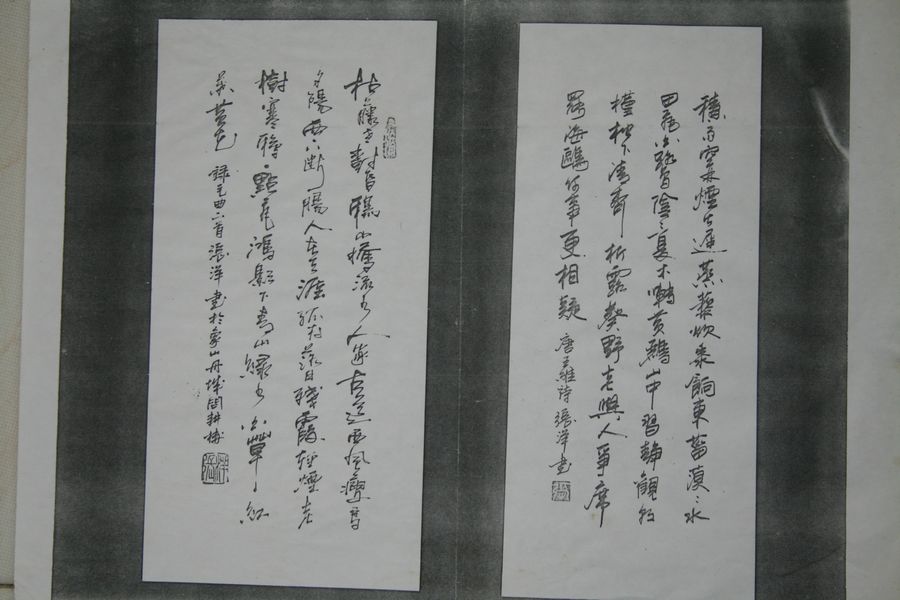 積雨空林煙火遲蒸藜炊黍餉東菑漠漠水
田飛白鷺陰陰夏木囀黃鸝山中習靜觀朝
槿松下清齋折露葵野老與人爭席
罷海鷗何事更相疑 唐王維詩 張洋書
枯藤老樹昏鴉小橋流水人家古道西風瘦馬
夕陽西下斷腸人在天涯孤村落日殘霞輕煙老
樹寒鴉一點飛鴻影下青山綠水白草
葉黃花 錄元曲六首 張洋書於象山丹城問耕樓